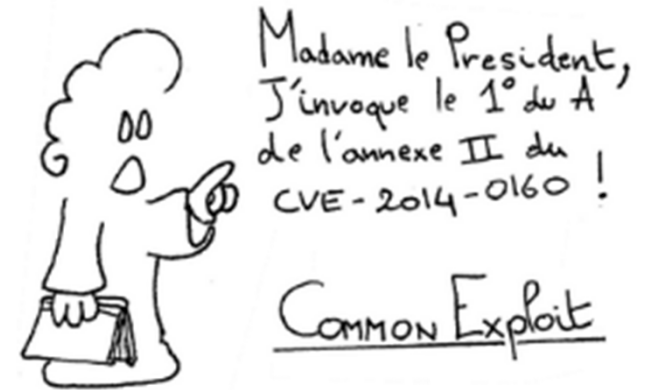 Madame le President,
J'invoque le 1° du A
de l'annexe II du
CVE-2014-0160 !
Common Exploit